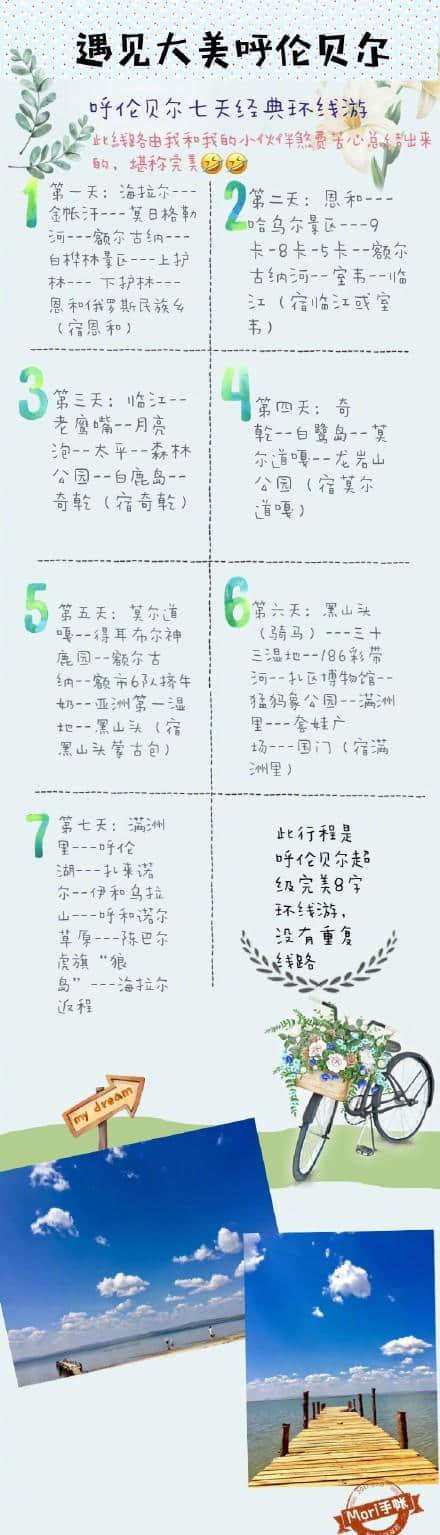 遇见大美呼伦贝尔
呼伦贝尔七天经典环线游
此线路由我和我的小伙伴煞费苦心总结出来
的，堪称完美🤣🤣
1
第一天：海拉尔---
金帐汗---莫日格勒
河---额尔古纳---
白桦林景区---上护
林--- 下护林---
恩和俄罗斯民族乡
（宿恩和）
2
第二天：恩和---
哈乌尔景区---9
卡-8卡-5卡--额尔
古纳河--室韦--临
江（宿临江或室
韦）
3
第三天：临江--
老鹰嘴--月亮
泡--太平--森林
公园--白鹿岛--
奇乾（宿奇乾）
4
第四天：奇
乾--白鹭岛--莫
尔道嘎--龙岩山
公园（宿莫尔
道嘎）
5
第五天：莫尔道
嘎--得耳布尔神
鹿园--额尔古
纳--额市6队挤牛
奶--亚洲第一湿
地--黑山头（宿
黑山头蒙古包）
6
第六天：黑山头
（骑马）---三十
三湿地--186彩带
河--扎区博物馆--
猛犸象公园--满洲
里---套娃广
场---国门（宿满
洲里）
7
第七天：满洲
里---呼伦
湖---扎来诺
尔--伊和乌拉
山---呼和诺尔
草原---陈巴尔
虎旗“狼
岛”---海拉尔
返程
此行程是
呼伦贝尔超
级完美8字
环线游，
没有重复
线路
my dream
Mori手帐